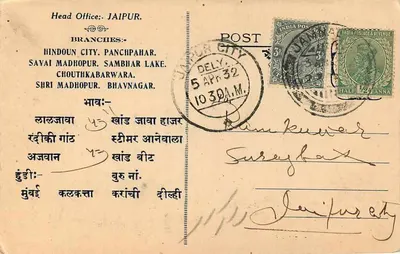 Head Office:- JAIPUR.
BRANCHES:-
HINDOUN CITY. PANCHPAHAR.
SAVAI MADHOPUR. SAMBHAR LAKE.
CHOUTHKABARWARA.
SHRI MADHOPUR. BHAVNAGAR.
भाव:-
लालजावा खांड जावा हाजर
रंदीकी गांठ स्टीमर आनेवाला
अजवान खांड बीट
हुंडी:- बुरु नां.
मुंबई कलकत्ता करांची दील्ही
POST
JAIPUR CITY
DELY.
5 APR 32
10 30 A.M.
Ramkuwar
Jaipur city